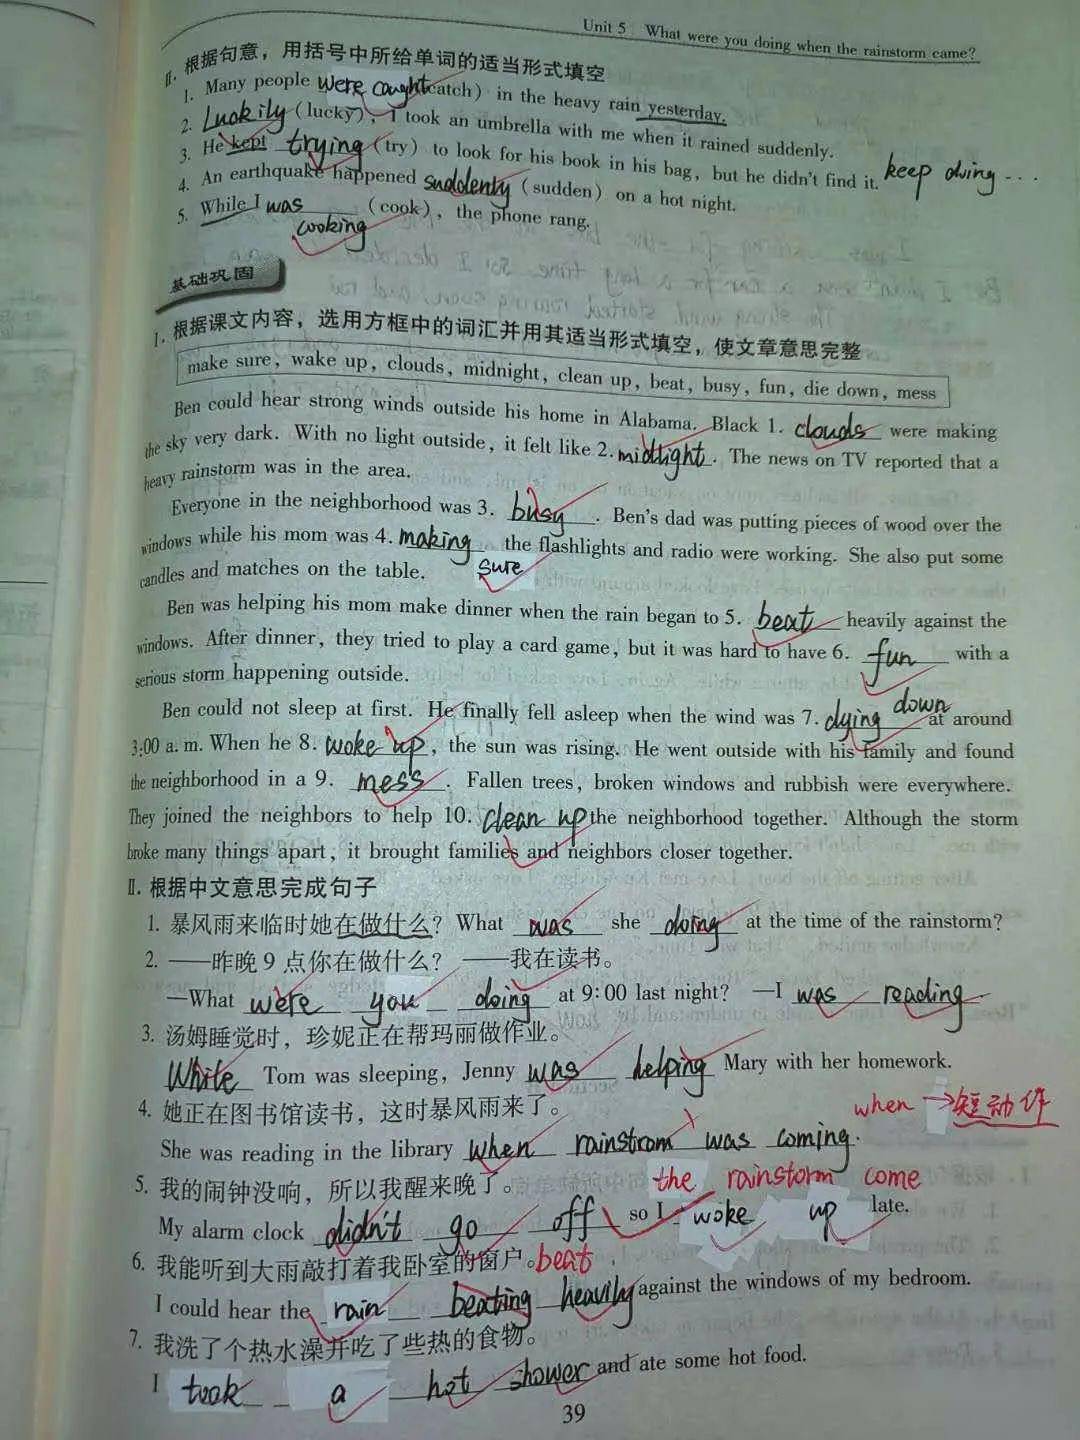 Unit 5 What were you doing when the rainstorm came?
Ⅱ. 根据句意，用括号中所给单词的适当形式填空
1. Many people were caught (catch) in the heavy rain yesterday.
2. Luckily (lucky), I took an umbrella with me when it rained suddenly.
3. He kept trying (try) to look for his book in his bag, but he didn't find it. keep doing...
4. An earthquake happened suddenly (sudden) on a hot night.
5. While I was cooking (cook), the phone rang.
基础巩固
Ⅰ. 根据课文内容，选用方框中的词汇并用其适当形式填空，使文章意思完整
make sure, wake up, clouds, midnight, clean up, beat, busy, fun, die down, mess
Ben could hear strong winds outside his home in Alabama. Black 1. clouds were making
the sky very dark. With no light outside, it felt like 2. midnight. The news on TV reported that a
heavy rainstorm was in the area.
Everyone in the neighborhood was 3. busy. Ben's dad was putting pieces of wood over the
windows while his mom was 4. making sure the flashlights and radio were working. She also put some
candles and matches on the table.
Ben was helping his mom make dinner when the rain began to 5. beat heavily against the
windows. After dinner, they tried to play a card game, but it was hard to have 6. fun with a
serious storm happening outside.
Ben could not sleep at first. He finally fell asleep when the wind was 7. dying down at around
3:00 a. m. When he 8. woke up, the sun was rising. He went outside with his family and found
the neighborhood in a 9. mess. Fallen trees, broken windows and rubbish were everywhere.
They joined the neighbors to help 10. clean up the neighborhood together. Although the storm
broke many things apart, it brought families and neighbors closer together.
Ⅱ. 根据中文意思完成句子
1. 暴风雨来临时她在做什么？ What was she doing at the time of the rainstorm?
2. ——昨晚 9 点你在做什么？ ——我在读书。
—What were you doing at 9:00 last night? —I was reading.
3. 汤姆睡觉时，珍妮正在帮玛丽做作业。
While Tom was sleeping, Jenny was helping Mary with her homework.
4. 她正在图书馆读书，这时暴风雨来了。 when → 短动作
She was reading in the library when rainstrom was coming.
the rainstorm come
5. 我的闹钟没响，所以我醒来晚了。
My alarm clock didn't go off so I woke up late.
6. 我能听到大雨敲打着我卧室的窗户。 beat
I could hear the rain beating heavily against the windows of my bedroom.
7. 我洗了个热水澡并吃了些热的食物。
I took a hot shower and ate some hot food.
39